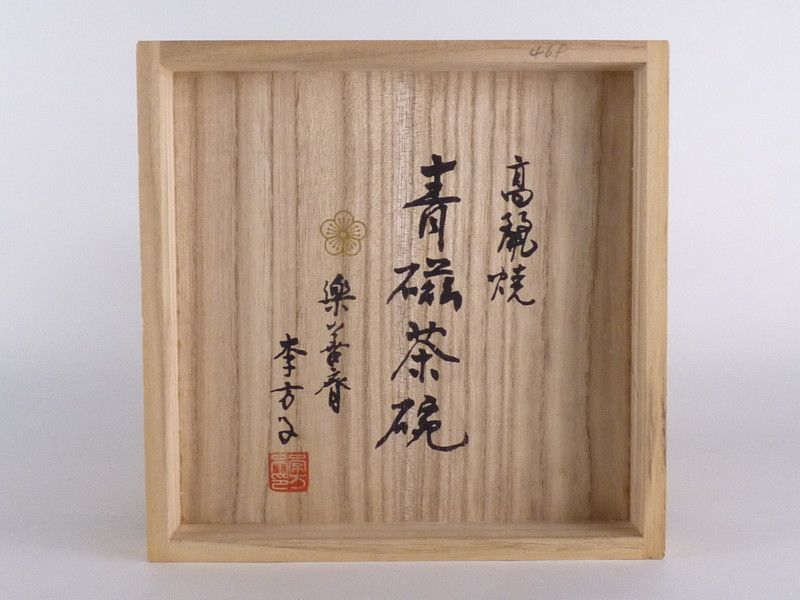 高麗焼
青磁茶碗
樂善齋
李方子
468